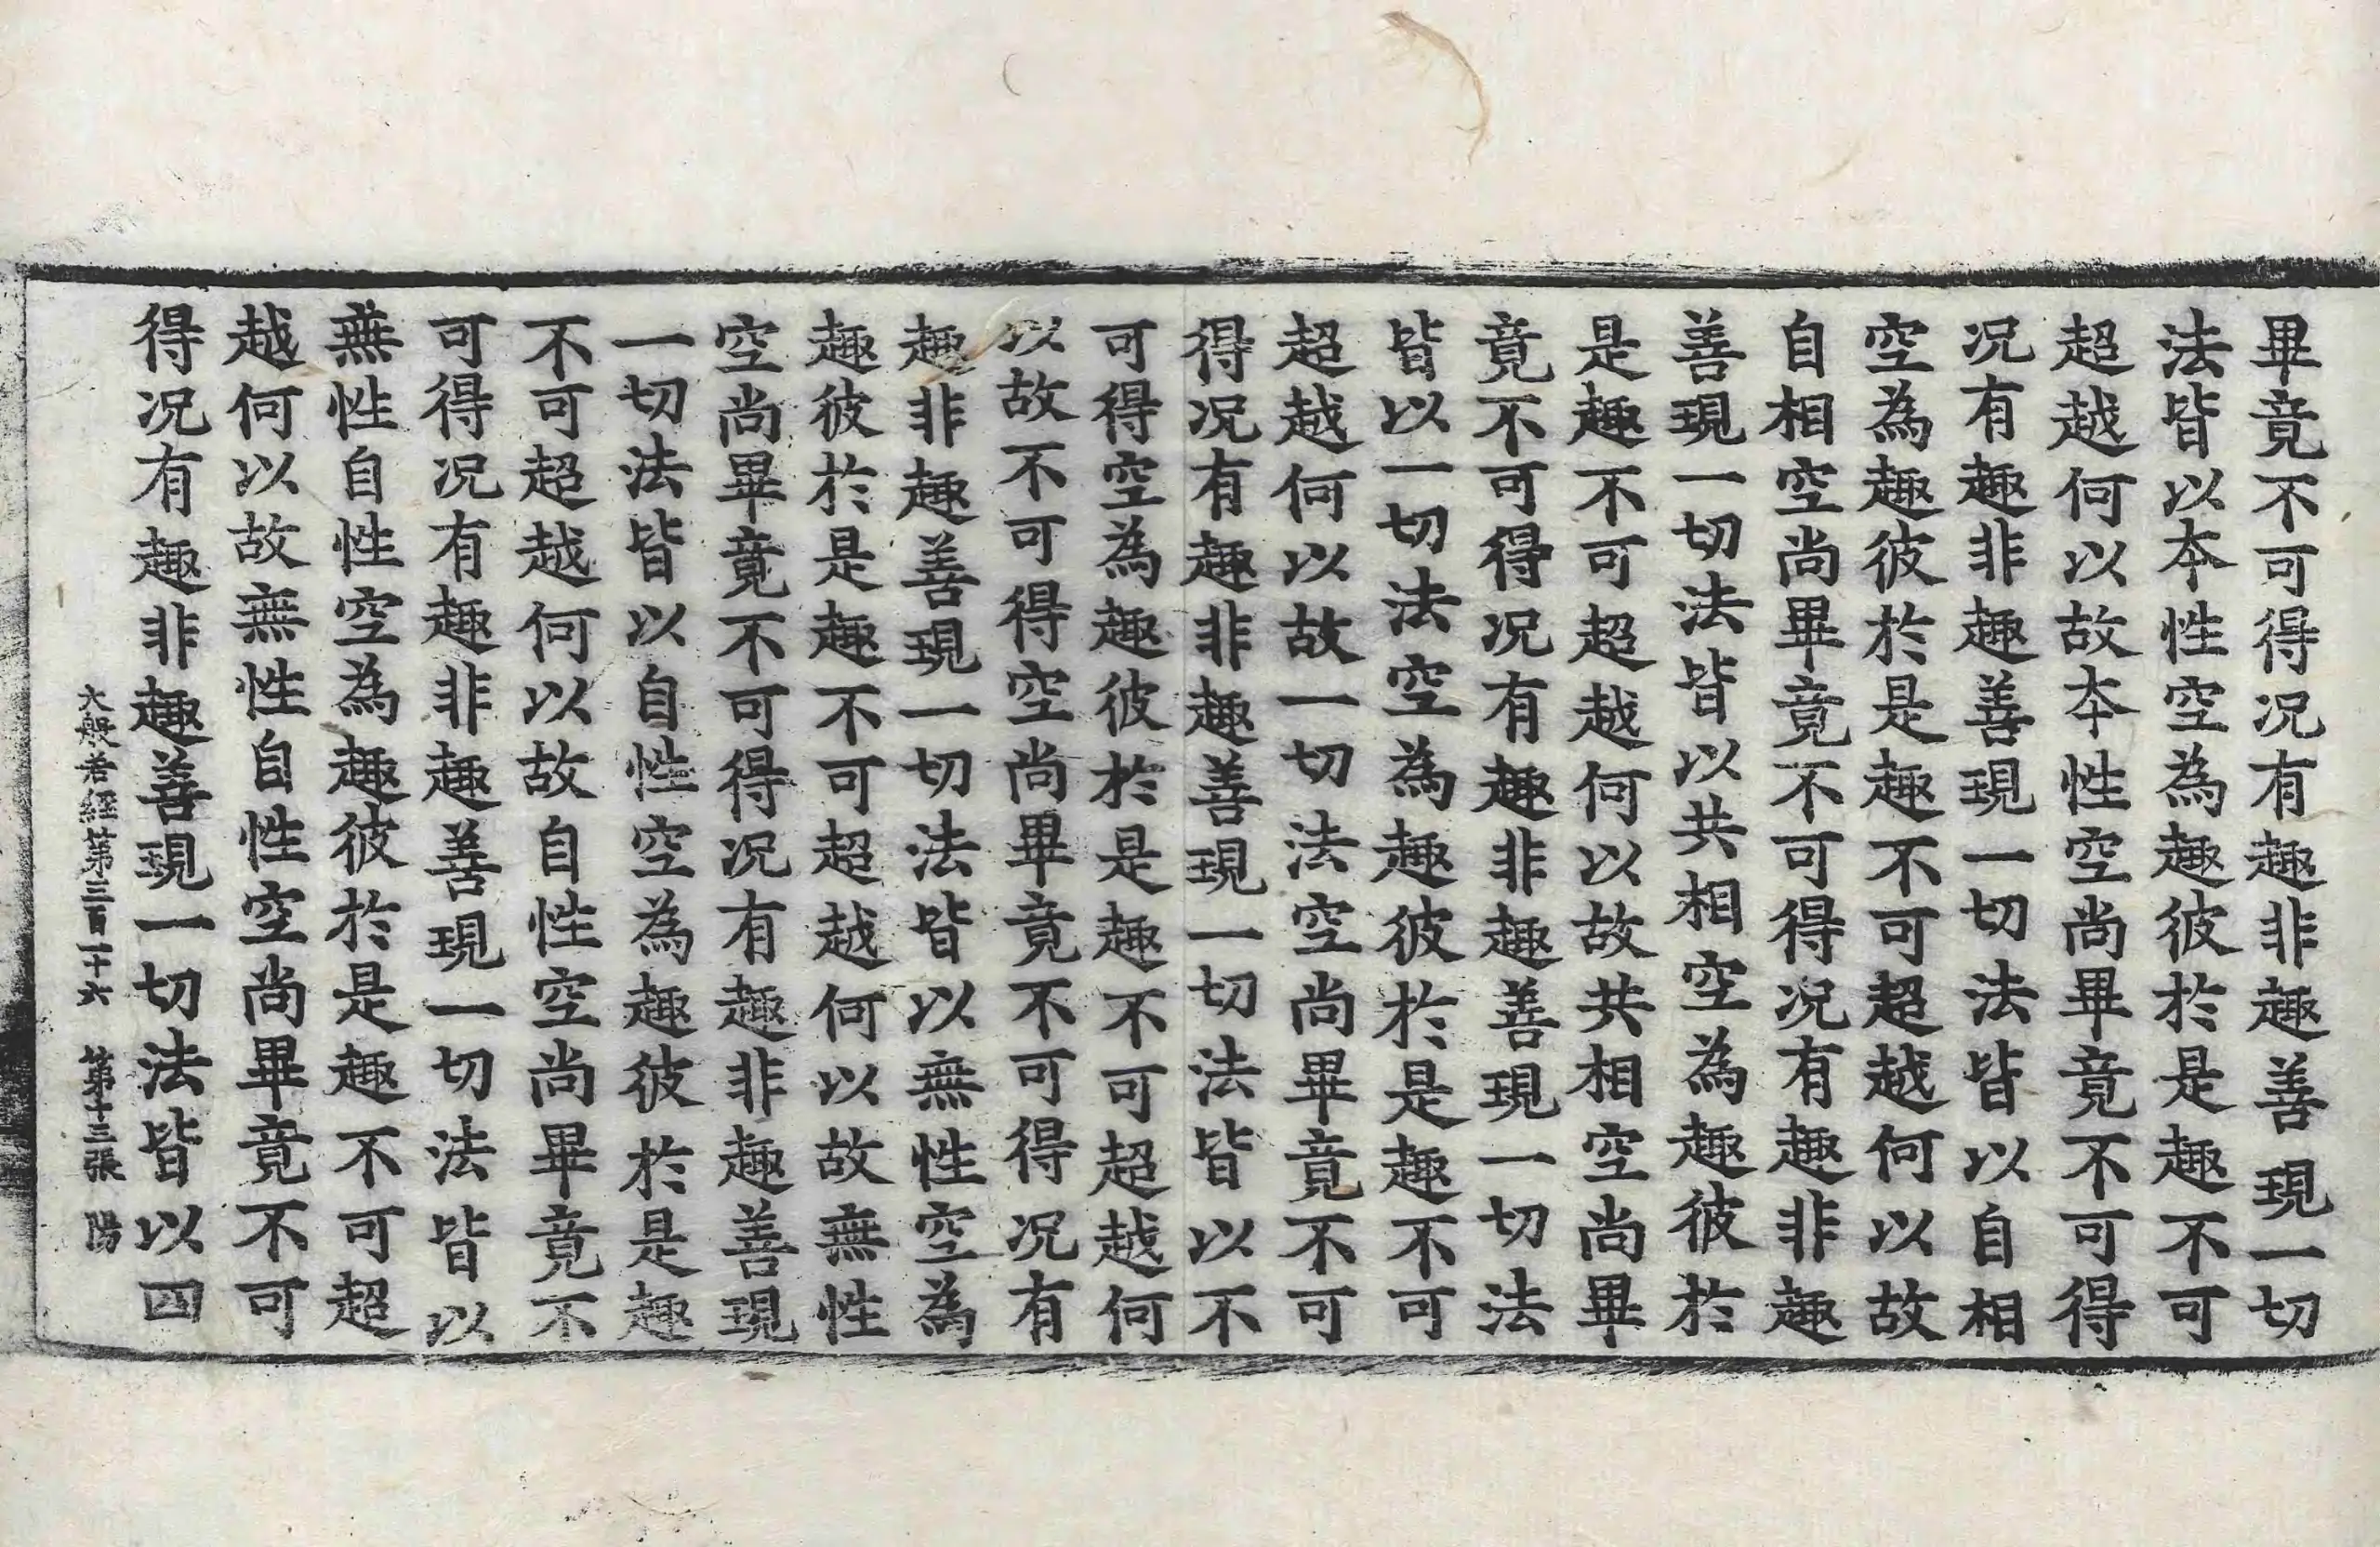 畢竟不可得况有趣非趣善現一切
法皆以本性空為趣彼於是趣不可
超越何以故本性空尚畢竟不可得
况有趣非趣善現一切法皆以自相
空為趣彼於是趣不可超越何以故
自相空尚畢竟不可得况有趣非趣
善現一切法皆以共相空為趣彼於
是趣不可超越何以故共相空尚畢
竟不可得况有趣非趣善現一切法
皆以一切法空為趣彼於是趣不可
超越何以故一切法空尚畢竟不可
得况有趣非趣善現一切法皆以不
可得空為趣彼於是趣不可超越何
以故不可得空尚畢竟不可得况有
趣非趣善現一切法皆以無性空為
趣彼於是趣不可超越何以故無性
空尚畢竟不可得况有趣非趣善現
一切法皆以自性空為趣彼於是趣
不可超越何以故自性空尚畢竟不
可得况有趣非趣善現一切法皆以
無性自性空為趣彼於是趣不可超
越何以故無性自性空尚畢竟不可
得况有趣非趣善現一切法皆以四
大般若經第三百一十六 第十三張 陽